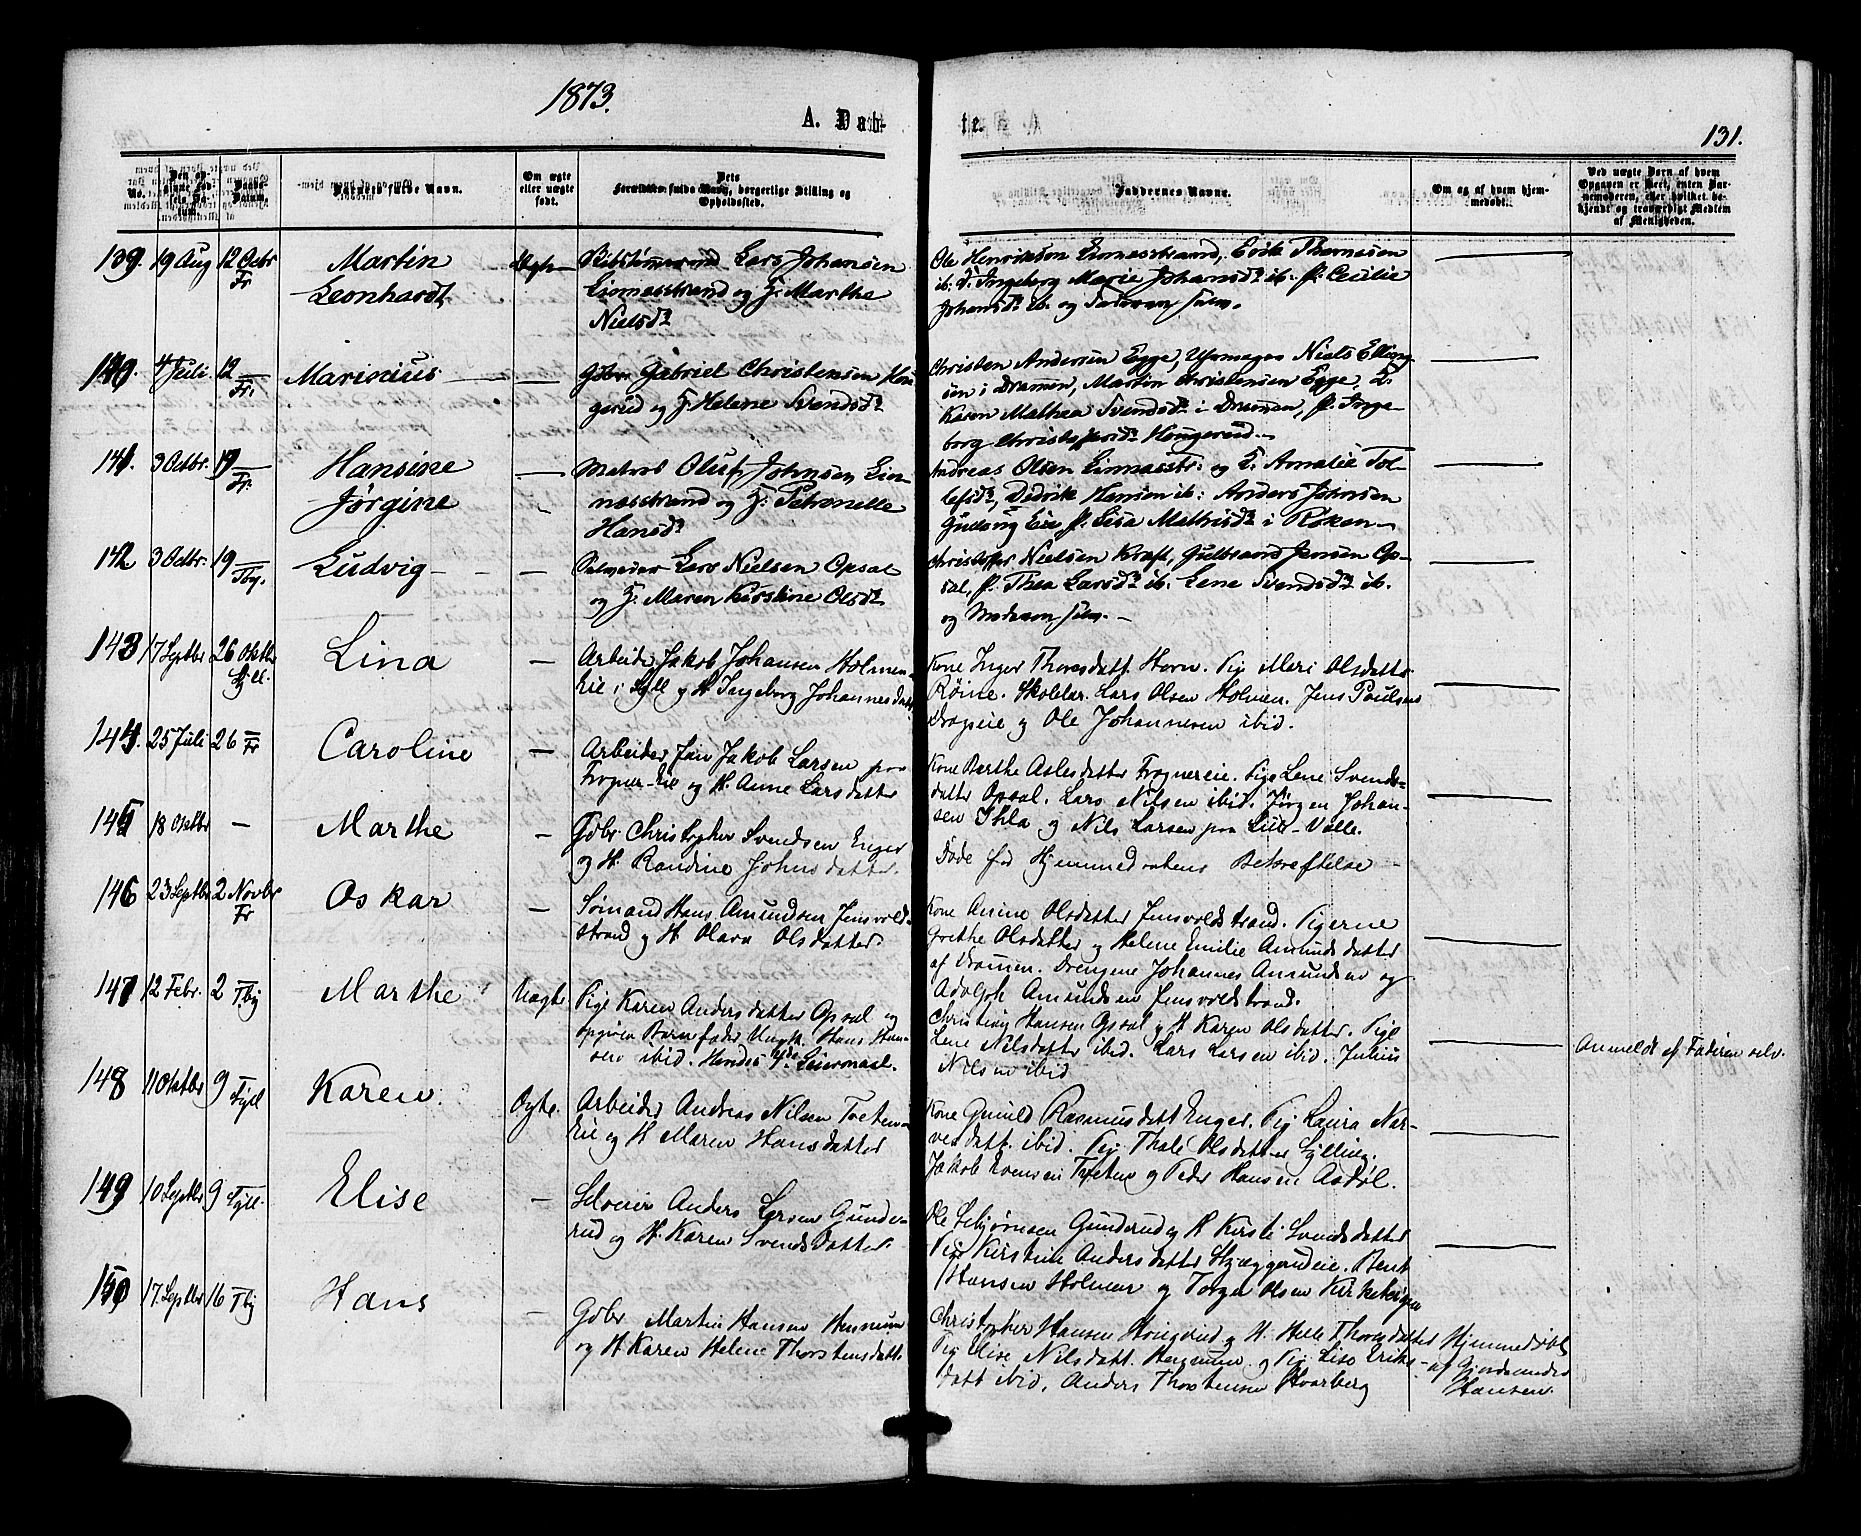 1873.
A. Dab-
te.
131.
No.
Barnets fulde Navn.
Om ægte
eller uægte
født.
Forældres fulde Navn, borgerlige Stilling og
Opholdssted.
Faddernes Navne.
Om og af hvem hjem-
medøbt.
Ved uægte Barn af hvem
Opgaven er skeet, enten Bar-
nemoderen, eller hvilket be-
kjendt og troværdigt Medlem
af Menigheden.
139. 19 Aug 12 Octbr Fr
Martin
Leonhardt
Ægte
Lars Johansen
Lionæsstrand og H. Marthe
Nielsdr
Ole Henriksen Lionæsstrand, Thomesen
ib. P. Ingeborg Marie Johansdr ib. P. Cecilie
Johansdr ib. og Faderen selv.
140. 4 Juli 12 Fr.
Marinius
Gbr. Gabriel Christensen Hou-
gerud og H. Helene Svendsdr
Christen Andersen Egge, Uhrmager Niels Elling-
sen i Dramen, Martin Christensen Egge, P.
Karen Mathea Svendsdr i Dramen, P. Inge-
borg Christophersdr Hougerud.
141. 3 Octbr. 19 Fr.
Hansine
Jørgine
Matros Oluf Johnsen Lion-
næsstrand og H. Petronelle
Hansdr
Andreas Olsen Lionnæsstr: og H. Amalie Tol-
lefsdr, Didrik Hansen ib: Anders Johnsen
Gudsvig Eie P. Lisa Mathisdr i Røken
142 3 Octbr. 19 Tby.
Ludvig
Lars Nielsen Opsal
og H. Maren Kirstine Olsdr
Christoffer Nielsen Kraft, Gulbrand Jensen Op-
sal, P. Thea Larsdr ib. Lene Svendsdr ib.
og Moderen selv.
143 17 Septbr 26 Oktbr Syll.
Lina
Arbeider Jakob Johansen Holmen-
Eie i Syll og H Ingeborg Johannesdatt
Kone Inger Thoresdatt. Horn. Pige Mari Olsdatter
Røine. Skolelær. Lars Olsen Holmen. Jens Paulsen
Dragseie og Ole Johannesen ibid.
144. 25 Juli 26 Fr
Caroline
Arbeider Jan Jakob Larsen paa
Frogner-Eie og H. Anne Larsdatter
Kone Berthe Aslesdatter Frognereie. Pige Lene Svends-
datter Opsal. Lars Nilsen ibid. Jørgen Johan-
sen Ihla og Nils Larsen paa Lier-Valle.
145 18 Oktbr
Marthe
Gdbr. Christopher Svendsen Enger
og H. Randine Johnsdatter.
Døde før Hjemmedaabens Bekræftelse
146 23 Septbr 2 Novbr Fr
Oskar
Sømand Hans Amundsen Jensvold-
strand og H Olava Olsdatter
Kone Anine Olsdatter Jensvoldstrand. Pigerne
Grethe Olsdatter og Helene Emilie Amundsdatter
af Dramen. Drengene Johannes Amundsen og
Adolph Amundsen Jensvoldstrand.
147 12 Febr. 2 Tby
Marthe
Uægte
Pige Karen Andersdatter Opsal og
opgiven Barnefader Ungk. Hans Han-
sen ibid. Hendes Leiermaal.
Christian Hansen Opsal og H Karen Olsdatter. Pige
Lene Nilsdatter ibid. Lars Larsen ibid. Julius
Nilsen ibid
Anmeldt af Faderen selv.
148 11 Oktbr 9 Syll
Karen
Ægte.
Arbeider Andreas Nilsen Tveten-
Eie og H Maren Hansdatter
Kone Gunild Rasmusdatt Enger. Pig Laura Nar-
vesdatt. ibid. Pig Thale Olsdatter Sylling.
Jakob Evensen Tveten og Peder Hansen Aadøl.
149 10 Septbr 9 Syll.
Elise
Selveier Anders Larsen Gunde-
rud og H. Karen Svendsdatter
Ole Asbjørnsen Gunderud og H Kirsti Svendsdatter
Pige Kirstine Andersdatter Skjæggerudeie. Bent
Hansen Holmen og Torger Olsen Kirkebraaten
150 17. Septbr 16 Tby
Hans
Gdbr Martin Hansen Hennum
og H Karen Helene Thorstensdatt.
Christopher Hansen Hougerud og H. Helle Thoresdatter
Pig Elise Nilsdatt. Hennum og Pig Lise Eriks-
datt ibid. Anders Thorstensen Hvarberg
Hjemmedøbt
af Gjordemoder
Hansen.